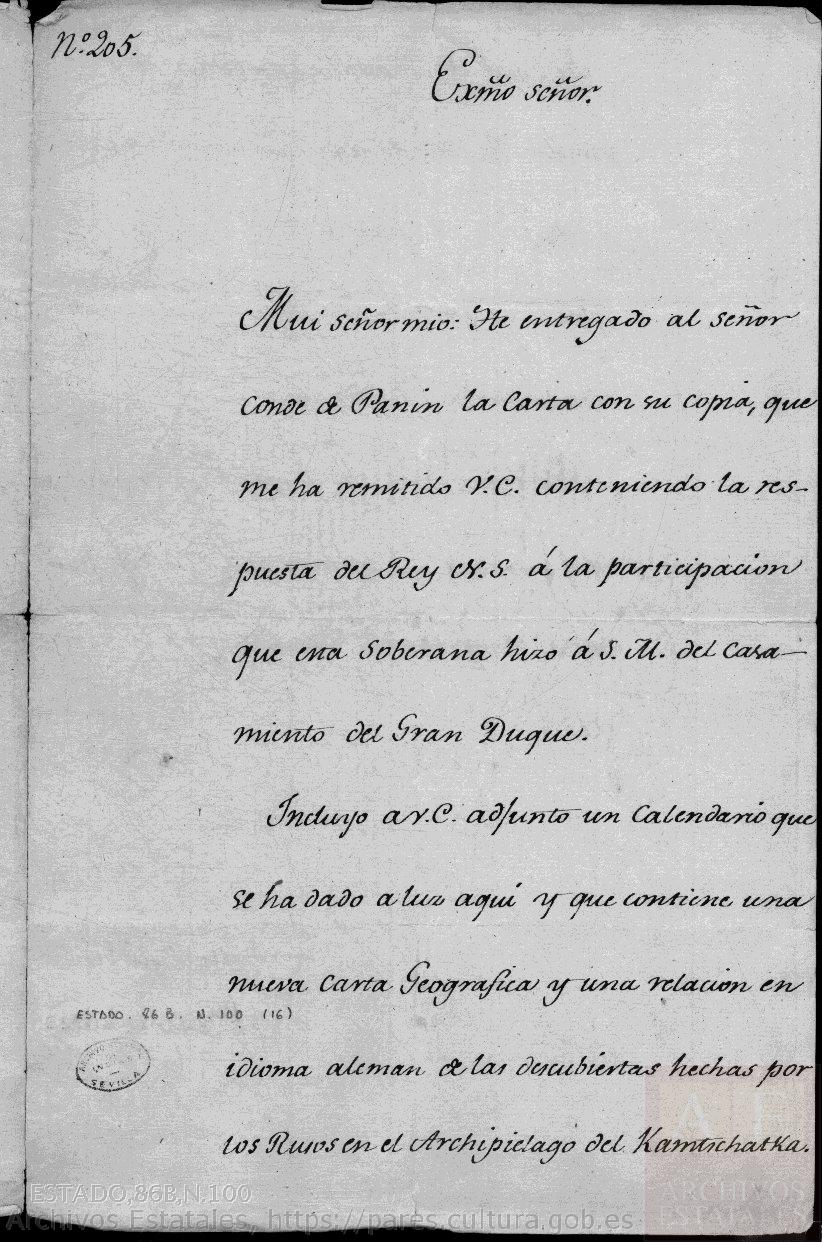 Nº 205.
Exm̃o señor.
Mui señor mio: He entregado al señor
Conde de Panin la Carta con su copia, que
me ha remitido V.E. conteniendo la res-
puesta del Rey N.S. á la participacion
que esta Soberana hizo á S.M. del Casa-
miento del Gran Duque.
Incluyo a V.E. adjunto un Calendario que
se ha dado a luz aquí y que contiene una
nueva Carta Geografica y una relacion en
idioma aleman de las descubiertas hechas por
los Rusos en el Archipielago del Kamtschatka.
ESTADO. 86 B. N. 100 (16)
SEVILLA
ESTADO,86B,N.100
Archivos Estatales, https://pares.cultura.gob.es
AE
ARCHIVOS
ESTATALES